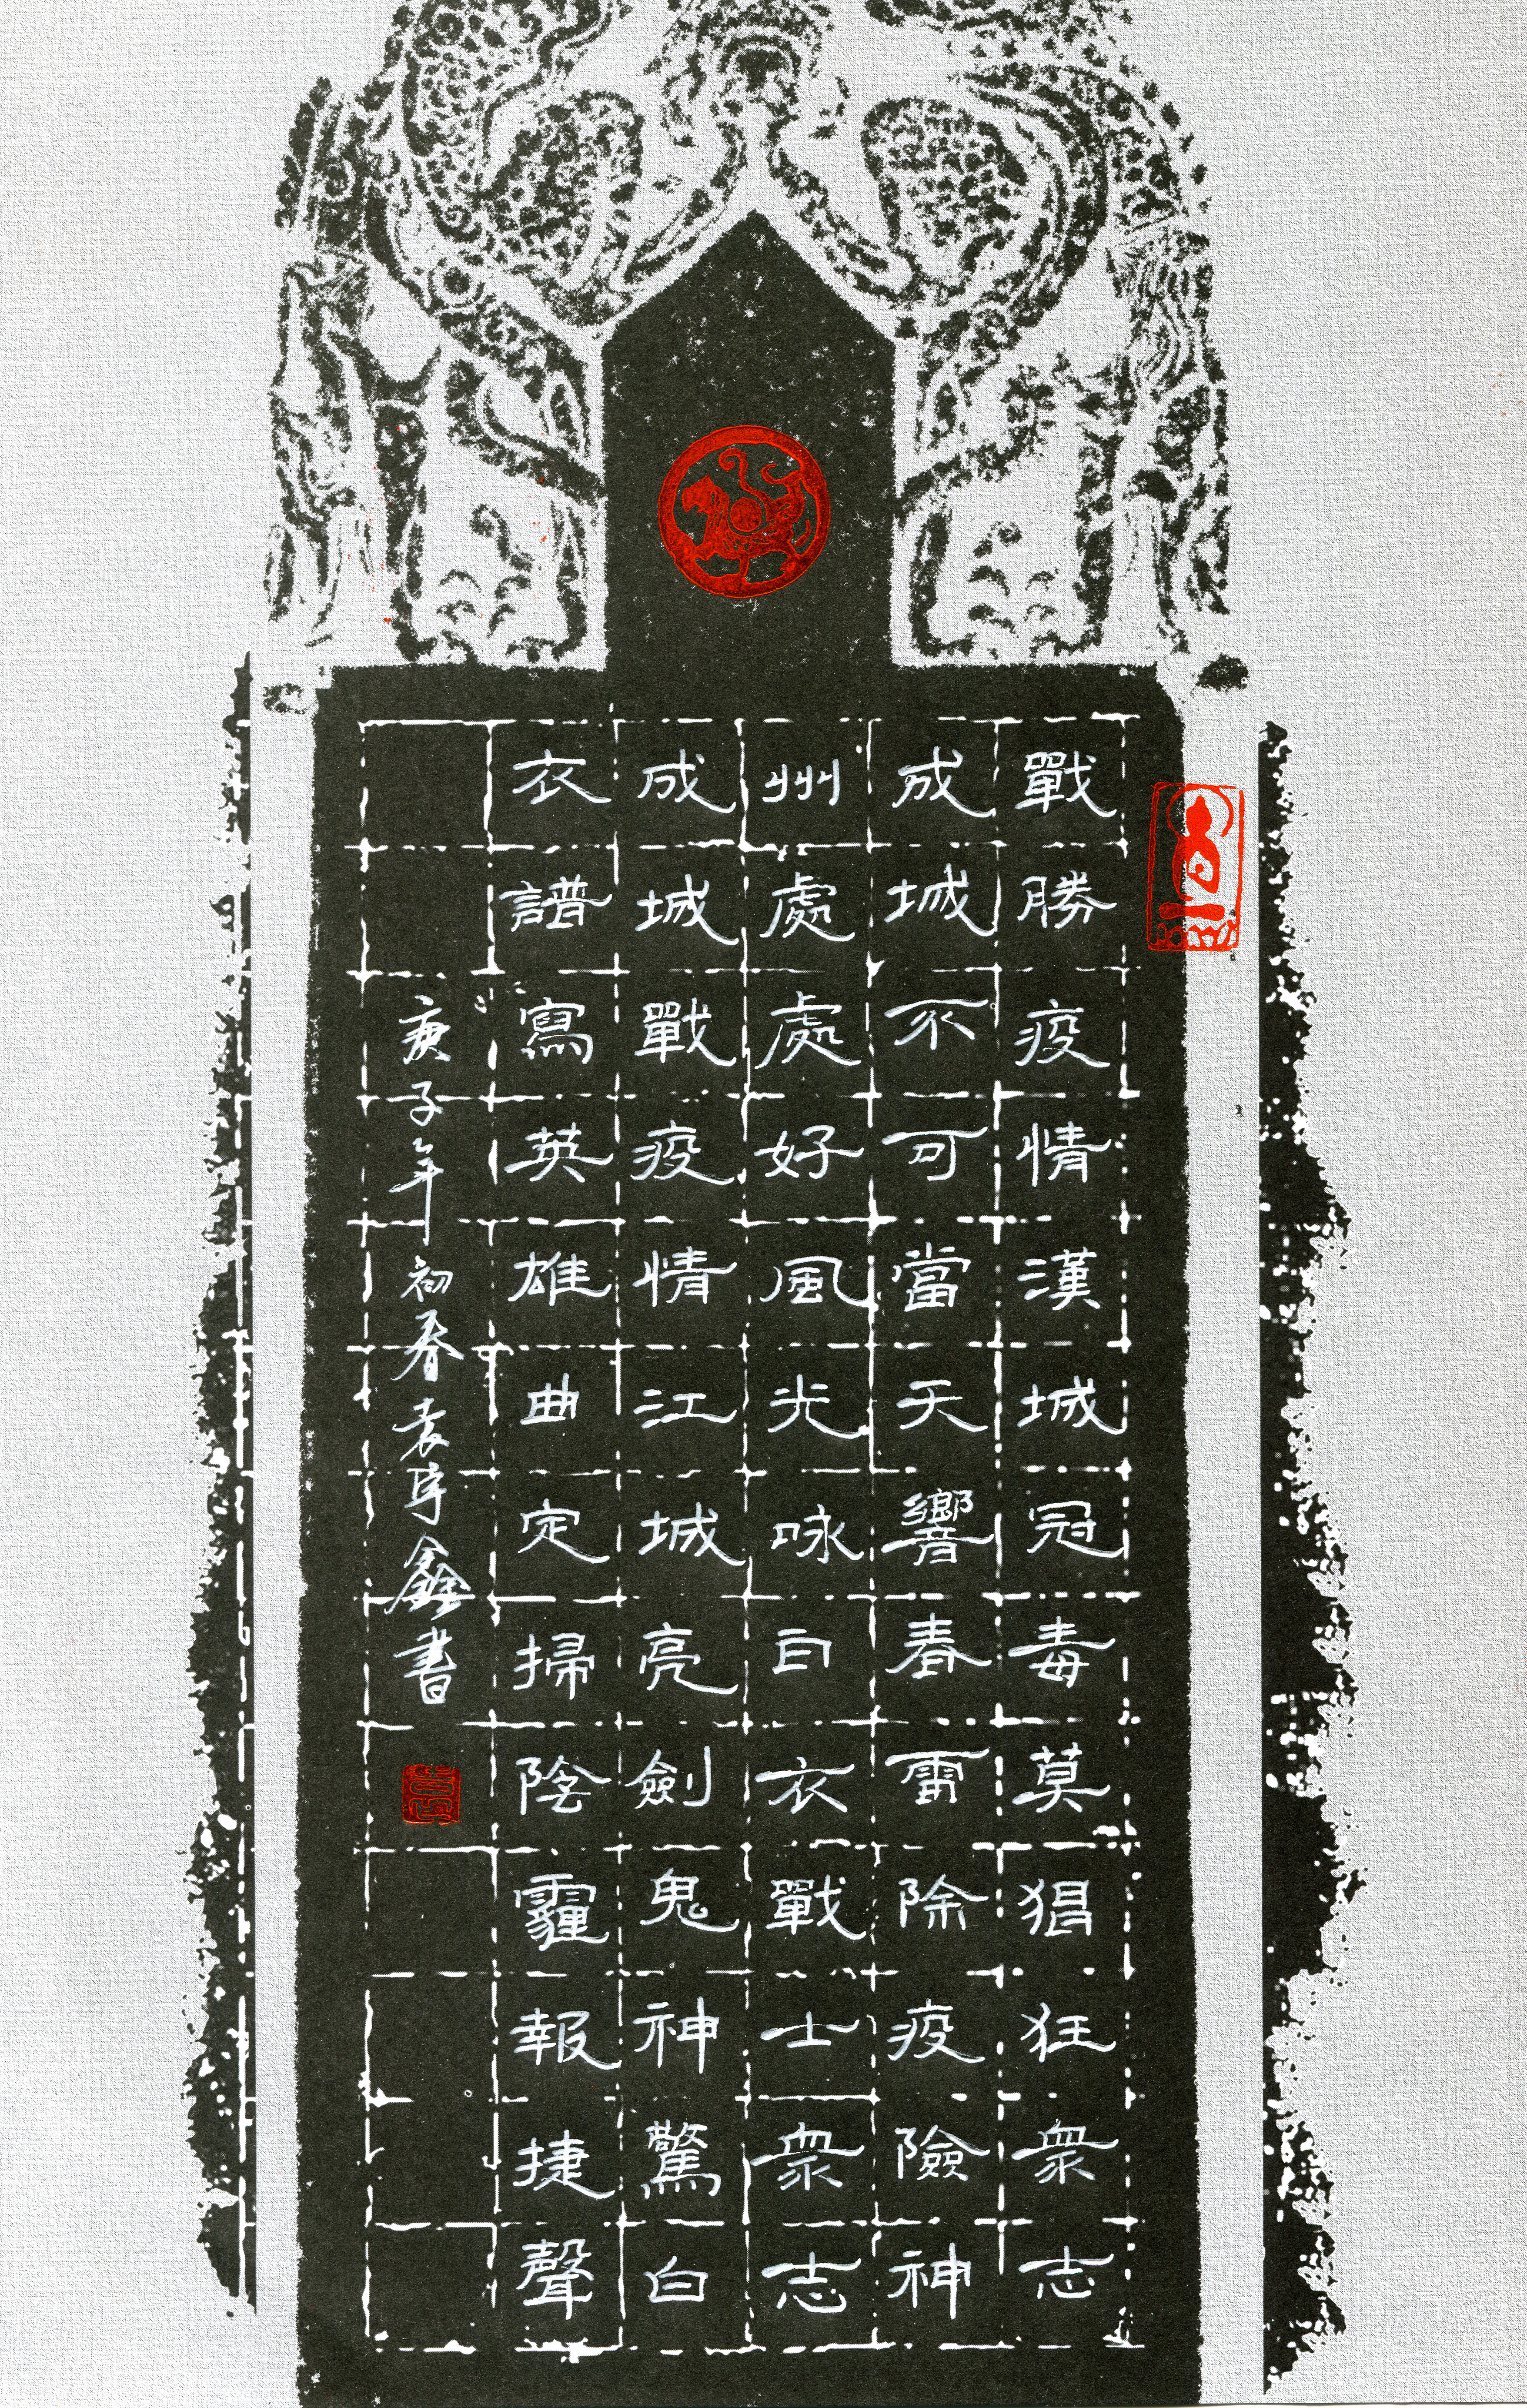 戰勝疫情漢城冠毒莫猖狂衆志
成城不可當天響春雷除疫險神
州處處好風光咏白衣戰士衆志
成城戰疫情江城亮劍鬼神驚白
衣譜寫英雄曲定掃陰霾報捷聲
庚子年初春袁 鑫書